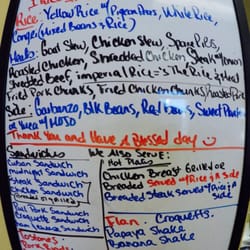 Rice: Yellow Rice w/ Pigeon Peas, White Rice,
Congri (Mixed Beans & Rice)
Meals: Goat Stew, Chicken Stew, Spare Ribs,
Roasted Chicken, Shredded Chicken, Steak w/ onion
Shredded Beef, imperial Rice
Fried Pork Chunks, Fried Chicken Chunks, Roasted
Side: Garbanzo, Blk Beans, Red Beans, Sweet
or Yuca w/ MOJO
Thank You and Have a Blessed day
Sandwiches
Cuban Sandwich
midnight Sandwich
Steak Sandwich
Chicken Sandwich
Pork Sandwich
Sandwich
Tostones
We Also Serve:
Hot Plates
Chicken Breast Grilled or
Breaded Served w/ Rice & A Side
Breaded Steak Served w/ Rice & A Side
Flan. Croquetts.
Papaya Shake
Banana Shake